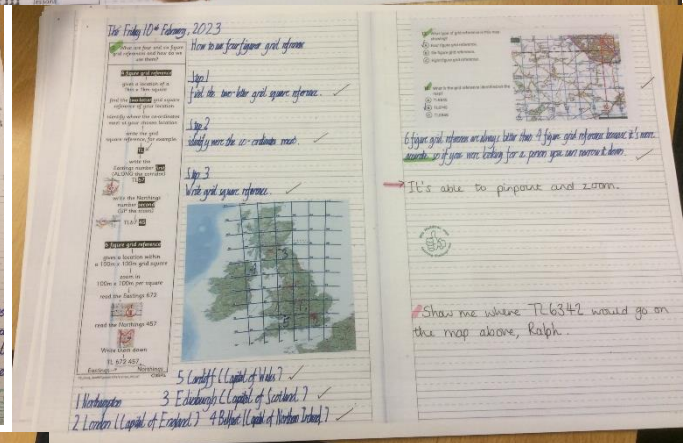 The Friday 10th February, 2023
What are four and six figure
grid references and how do we
use them?
4 figure grid reference
gives a location of a
1km x 1km square
find the two-letter grid square
reference of your location
identify where the coordinates
meet at your chosen location
write the grid
square reference, for example
TL
write the
Eastings number first
(ALONG the corridor)
TL 67
write the Northings
number second
(UP the stairs)
TL 67 45
6 figure grid reference
gives a location within
a 100m x 100m grid square
zoom in
100m x 100m per square
read the Eastings 672
read the Northings 457
Write them down
TL 672 457
Eastings Northings
How to use four figure grid reference
Step 1
find the two-letter grid square reference.
Step 2
identify were the co-ordinates meet.
Step 3
Write grid square reference.
5 Cardiff (Capital of Wales)
1 Northampton 3 Edinburgh (Capital of Scotland)
2 London (Capital of England) 4 Belfast (Capital of Northern Ireland)
6 figure grid reference are always better than 4 figure grid reference because it's more
accurate so if you were looking for a person you can narrow it down.
It's able to pinpoint and zoom.
Show me where TL6342 would go on
the map above, Ralph.